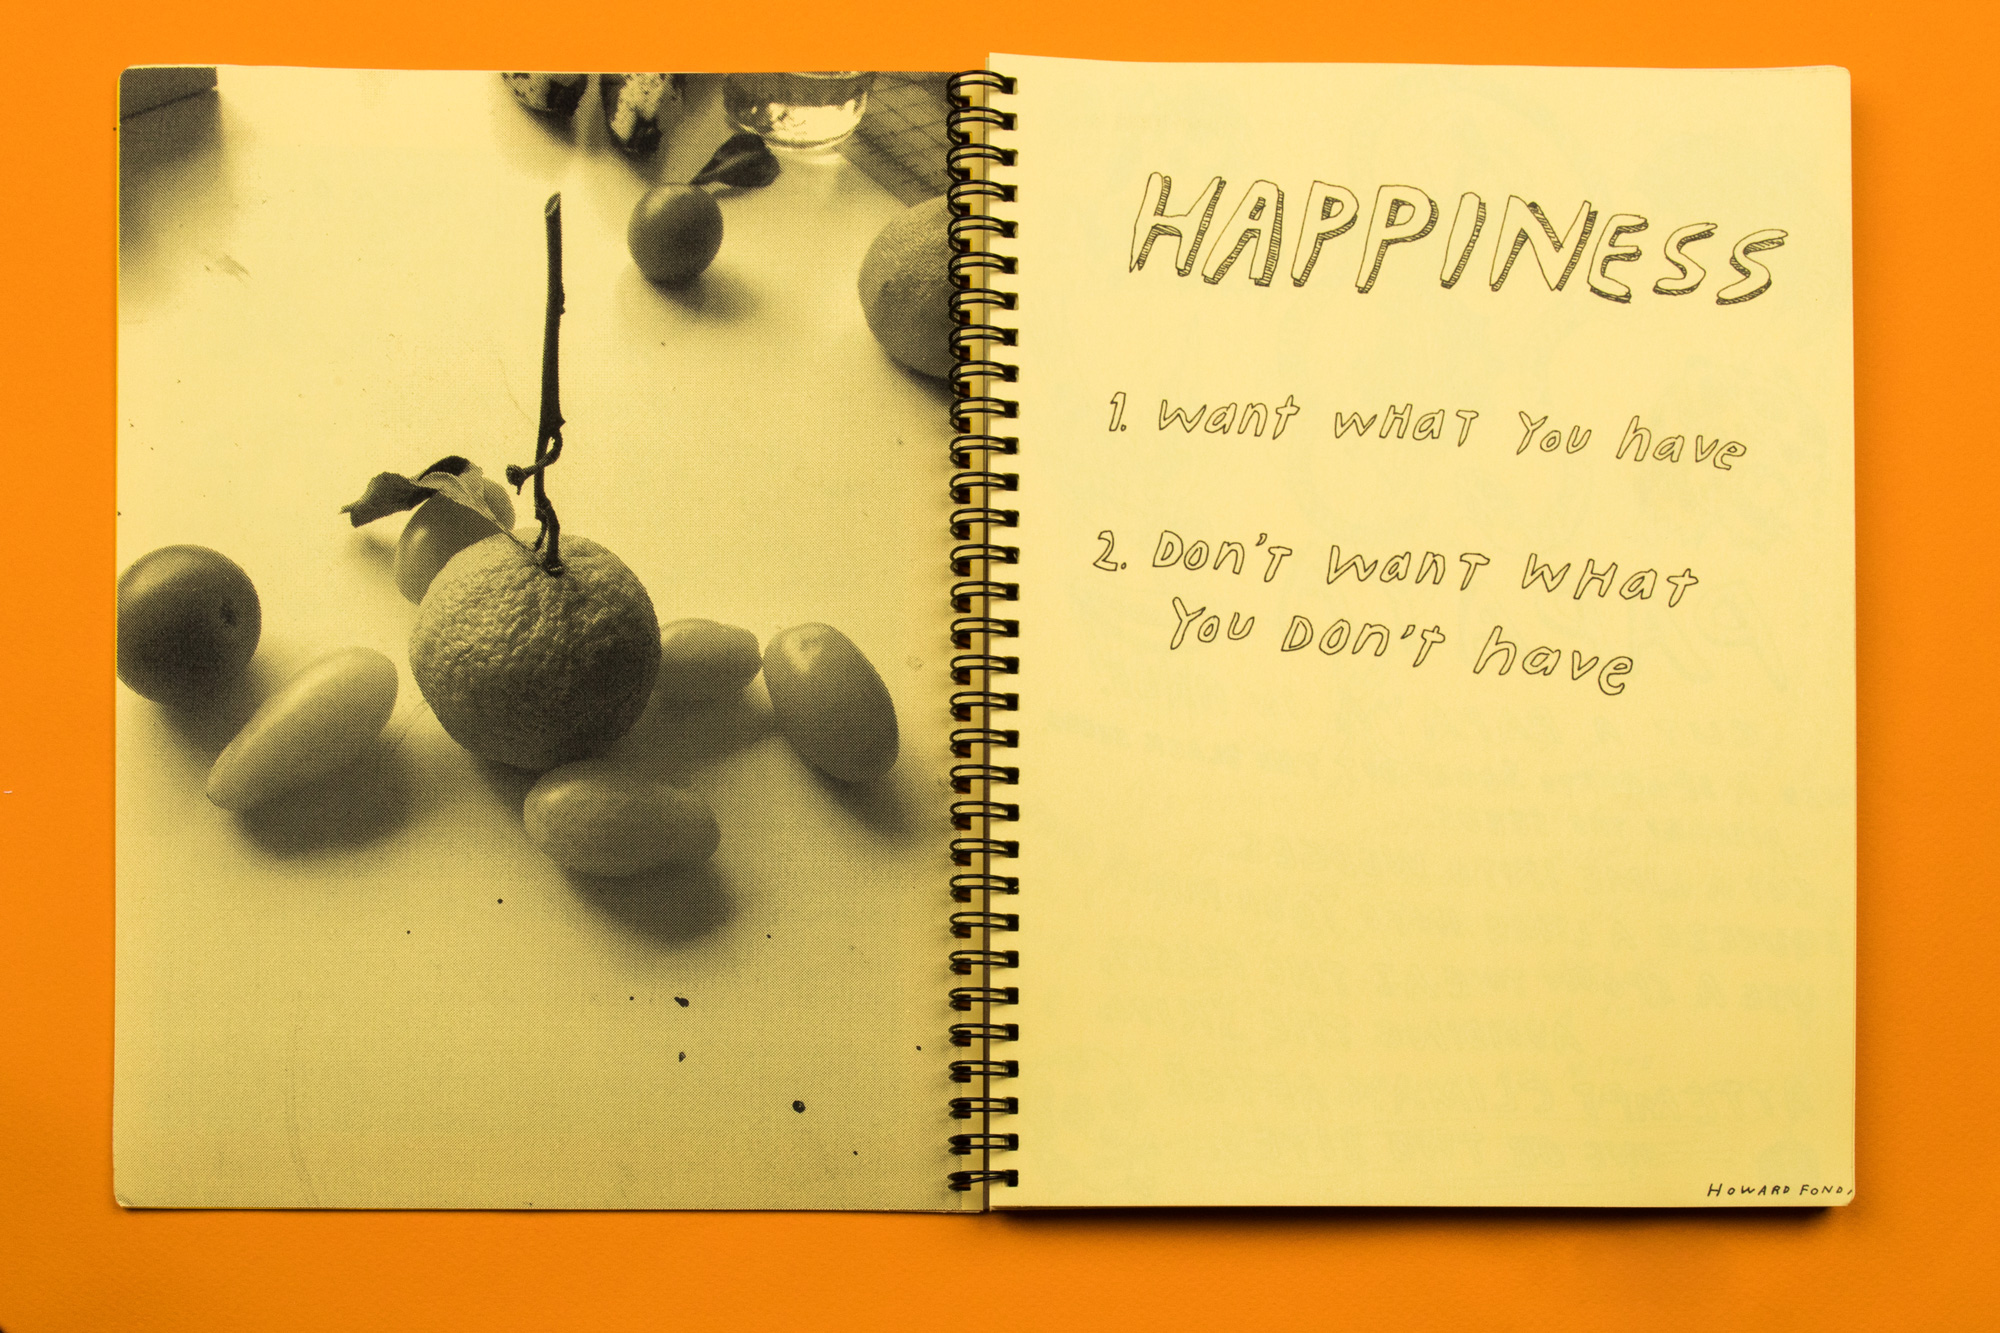 HAPPINESS
1. want wHaT You have
2. Don't wanT wHat
You Don't have
HOWARD FOND,